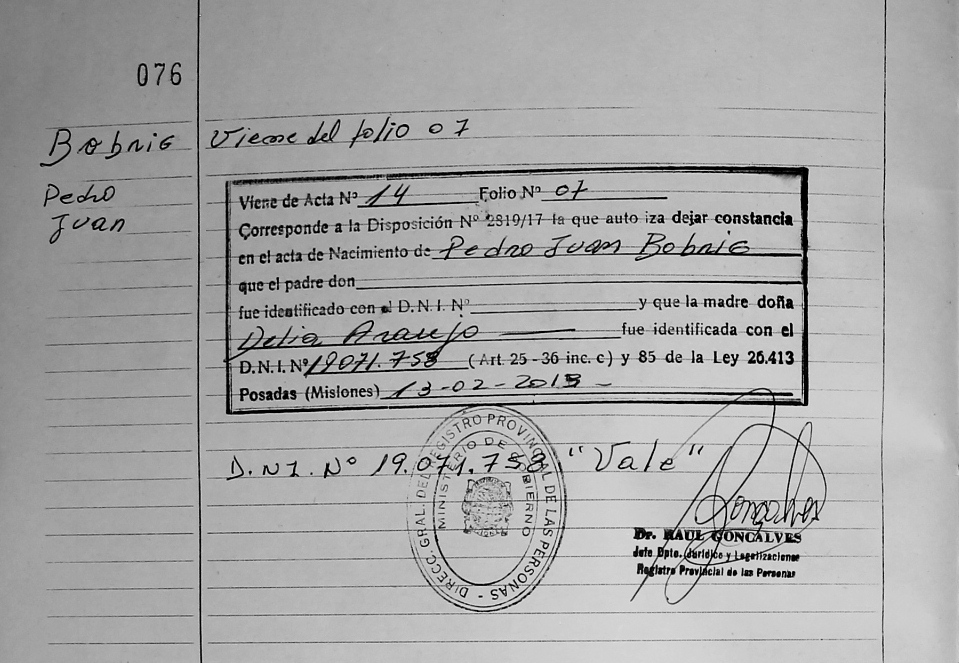 076
Bobrie
Viene del folio 07
Pedro
Juan
Viene de Acta Nº 14 Folio Nº 07
Corresponde a la Disposición Nº 2819/17 la que auto iza dejar constancia
en el acta de Nacimiento de Pedro Juan Bobrie
que el padre don
fue identificado con el D.N.I. Nº y que la madre doña
Delia Araujo fue identificada con el
D.N.I. Nº 19071.758 (Art. 25 - 36 inc. c) y 85 de la Ley 26.413
Posadas (Misiones) 13-02-2018 -
D.N.I. Nº 19.071.758 "Vale"
DIRECC. GRAL. DEL REGISTRO PROVINCIAL DE LAS PERSONAS -
MINISTERIO DE GOBIERNO
Gonçalves
Dr. RAUL GONCALVES
Jefe Dpto. Jurídico y Legalizaciones
Registro Provincial de las Personas